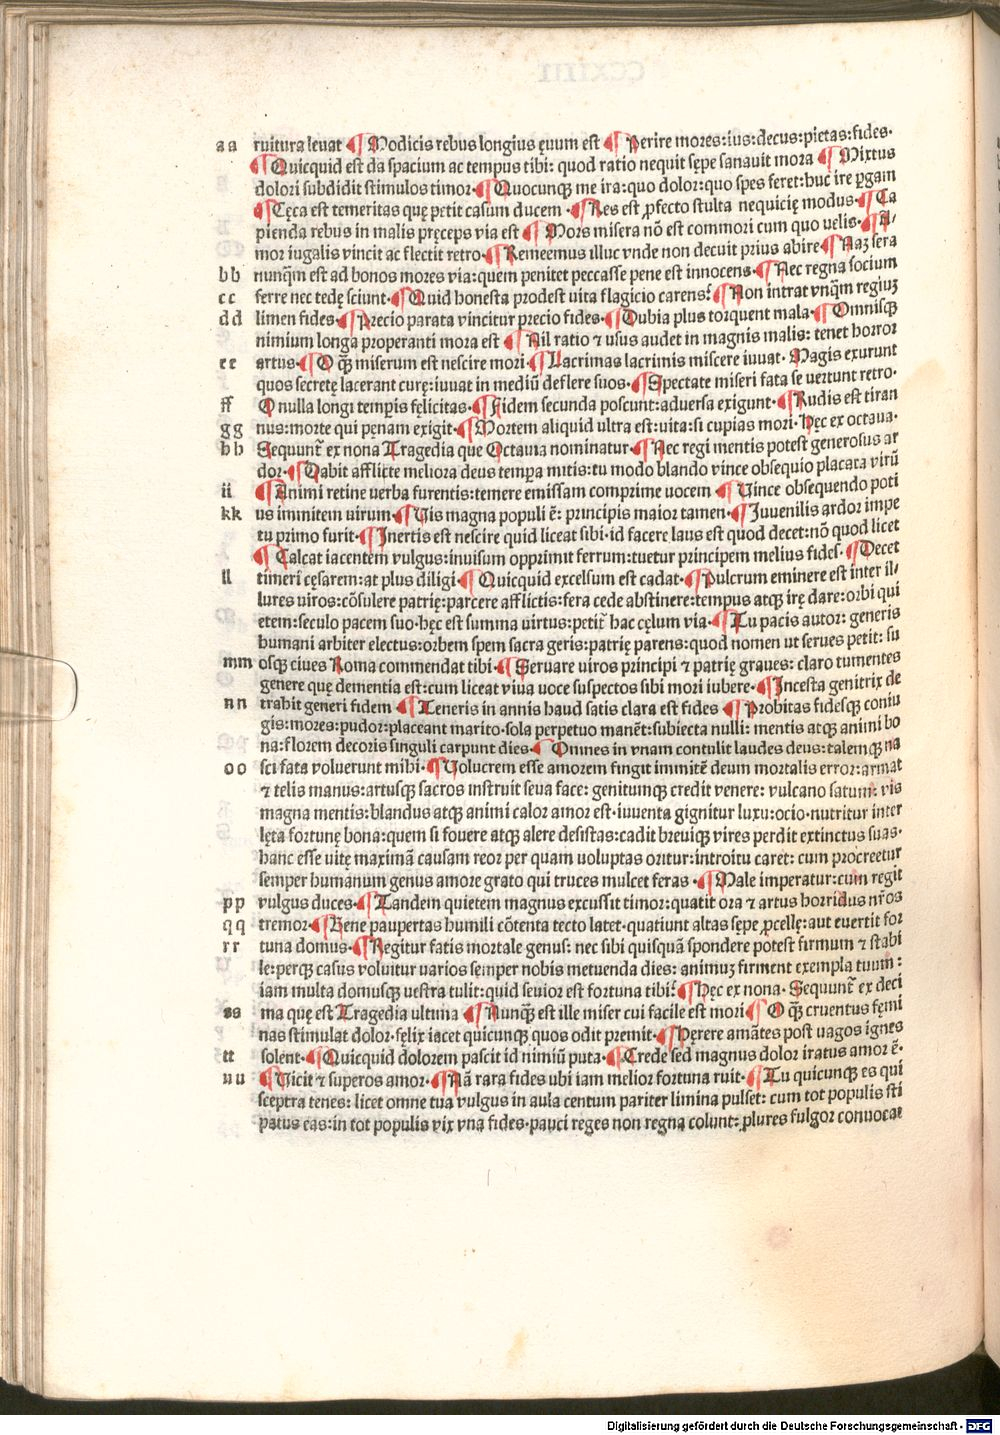 aa ruitura leuat ¶ Modicis rebus longius ęuum est ¶ Perire mores: ius: decus: pietas: fides·
¶ Quicquid est da spacium ac tempus tibi: quod ratio nequit sępe sanauit mora ¶ Mixtus
dolori subdidit stimulos timor· ¶ Quocunqꝫ me ira: quo dolor: quo spes feret: huc ire ꝑgam
¶ Cęca est temeritas quę petit casum ducem · ¶ Res est ꝓfecto stulta nequicię modus· ¶ Ca
pienda rebus in malis pręceps via est ¶ Mors misera nō est commori cum quo uelis· ¶ A/
mor iugalis vincit ac flectit retro· ¶ Remeemus illuc vnde non decuit prius abire ¶ Naꝫ sera
bb nunq̄m est ad bonos mores via: quem penitet peccasse pene est innocens· ¶ Nec regna socium
cc ferre nec tedę sciunt· ¶ Quid honesta prodest uita flagicio carens? ¶ Non intrat vnq̄m regiuꝫ
dd limen fides· ¶ Precio parata vincitur precio fides· ¶ Dubia plus torquent mala· ¶ Omnisqꝫ
nimium longa properanti mora est ¶ Nil ratio ⁊ usus audet in magnis malis: tenet horror
ee artus· ¶ O q̄ꝫ miserum est nescire mori· ¶ Lacrimas lacrimis miscere iuuat· Magis exurunt
quos secretę lacerant curę: iuuat in mediū deflere suos· ¶ Spectate miseri fata se vertunt retro·
ff O nulla longi tempis fęlicitas· ¶ Fidem secunda poscunt: aduersa exigunt· ¶ Rudis est tiran
gg nus: morte qui pęnam exigit· ¶ Mortem aliquid ultra est: uita: si cupias mori· Hęc ex octaua·
hh Sequunt̄ ex nona Tragedia que Octauia nominatur· ¶ Nec regi mentis potest generosus ar
dor· ¶ Dabit afflicte meliora deus tempa mitis: tu modo blando vince obsequio placata virū
ii ¶ Animi retine uerba furentis: temere emissam comprime uocem ¶ Vince obsequendo poti
kk us immitem uirum· ¶ Vis magna populi ē: principis maior tamen· ¶ Iuuenilis ardor impe
tu primo furit· ¶ Inertis est nescire quid liceat sibi· id facere laus est quod decet: nō quod licet
¶ Calcat iacentem vulgus: inuisum opprimit ferrum: tuetur principem melius fides· ¶ Decet
ll timeri cęsarem: at plus diligi· ¶ Quicquid excelsum est cadat· ¶ Pulcrum eminere est inter il/
lures uiros: cōsulere patrię: parcere afflictis: fera cede abstinere: tempus atqꝫ irę dare: orbi qui
etem: seculo pacem suo· hęc est summa uirtus: petit̄ hac cęlum via· ¶ Tu pacis autor: generis
humani arbiter electus: orbem spem sacra geris: patrię parens: quod nomen ut serues petit: su
mm osqꝫ ciues Roma commendat tibi· ¶ Seruare uiros principi ⁊ patrię graues: claro tumentes
genere quę dementia est: cum liceat viua uoce suspectos sibi mori iubere· ¶ Incesta genitrix de
nn trahit generi fidem ¶ Teneris in annis haud satis clara est fides ¶ Probitas fidesqꝫ coniu
gis: mores: pudor: placeant marito· sola perpetuo manēt: subiecta nulli: mentis atqꝫ animi bo
na: florem decoris singuli carpunt dies· ¶ Omnes in vnam contulit laudes deus: talemqꝫ na
oo sci fata voluerunt mihi· ¶ Volucrem esse amorem fingit immitē deum mortalis error: armat
⁊ telis manus: artusqꝫ sacros instruit seua face: genitumqꝫ credit venere: vulcano satum: vis
magna mentis: blandus atqꝫ animi calor amor est· iuuenta gignitur luxu: ocio· nutritur inter
lęta fortunę bona: quem si fouere atqꝫ alere desistas: cadit breuiqꝫ vires perdit extinctus suas·
hanc esse uitę maximā causam reor per quam uoluptas oritur: introitu caret: cum procreetur
semper humanum genus amore grato qui truces mulcet feras · ¶ Male imperatur: cum regit
pp vulgus duces· ¶ Tandem quietem magnus excussit timor: quatit ora ⁊ artus horridus nr̄os
qq tremor· ¶ Bene paupertas humili cōtenta tecto latet· quatiunt altas sępe ꝓcellę: aut euertit for
rr tuna domus· ¶ Regitur fatis mortale genus: nec sibi quisquā spondere potest firmum ⁊ stabi
le: perqꝫ casus voluitur uarios semper nobis metuenda dies: animuꝫ firment exempla tuum:
iam multa domusqꝫ uestra tulit: quid seuior est fortuna tibi? ¶ Hęc ex nona· Sequunt̄ ex deci
ss ma quę est Tragedia ultima ¶ Nunqꝫ est ille miser cui facile est mori ¶ O q̄ꝫ cruentus fęmi
nas stimulat dolor· felix iacet quicunqꝫ quos odit premit· ¶ Herere amātes post uagos ignes
tt solent· ¶ Quicquid dolorem pascit id nimiū puta· ¶ Crede sed magnus dolor iratus amor ē·
uu ¶ Vicit ⁊ superos amor· ¶ Nā rara fides ubi iam melior fortuna ruit· ¶ Tu quicunqꝫ es qui
sceptra tenes: licet omne tua vulgus in aula centum pariter limina pulset: cum tot populis sti
patus eas: in tot populis vix vna fides· pauci reges non regna colunt: plures fulgor conuocat
Digitalisierung gefördert durch die Deutsche Forschungsgemeinschaft - DFG